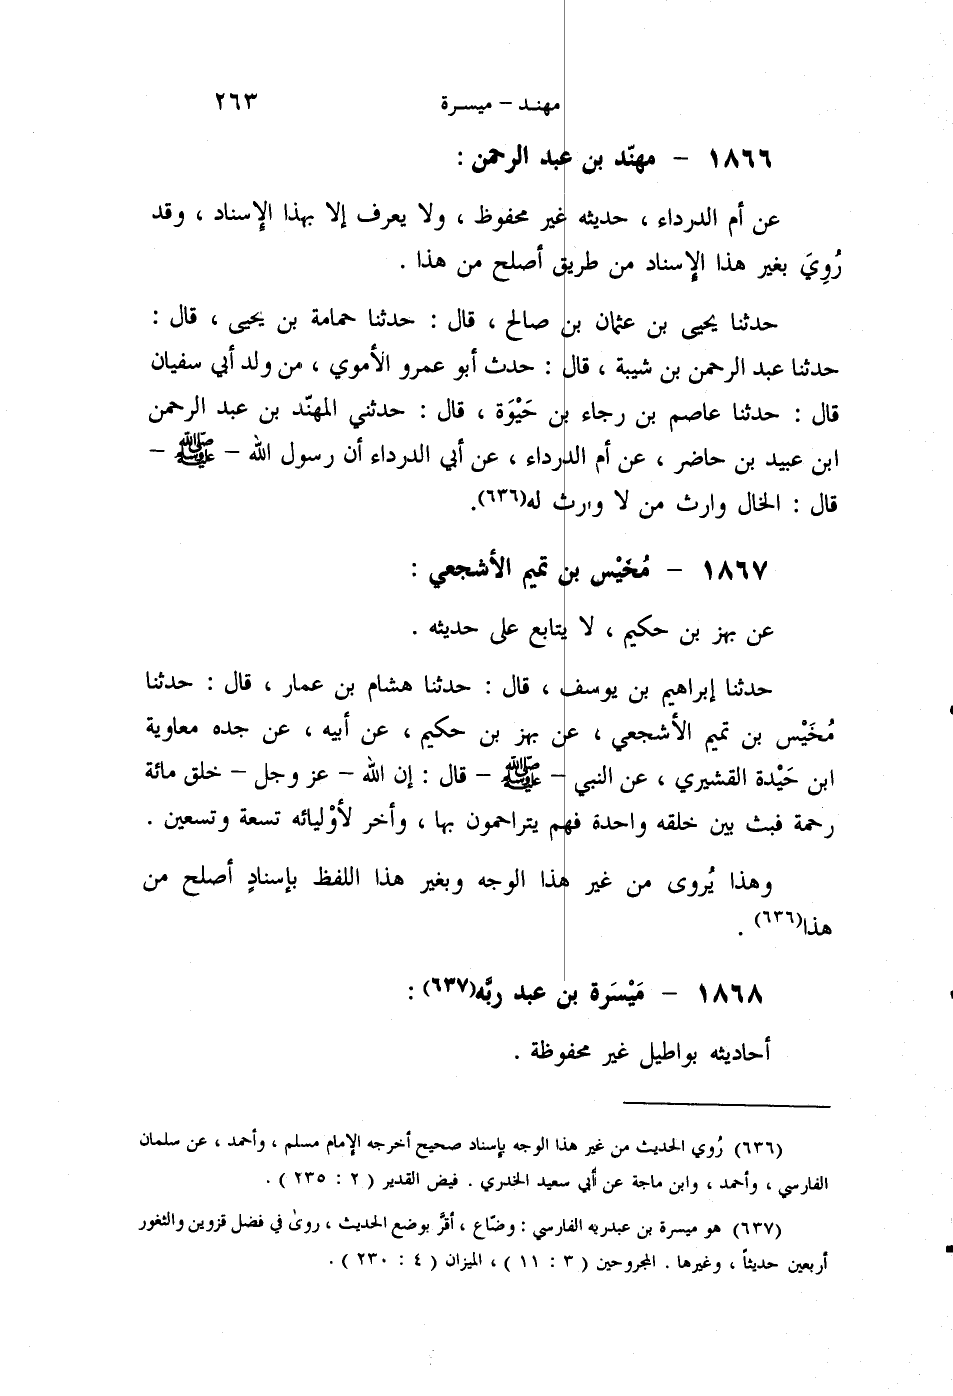 مهنـد – ميسـرة ٢٦٣
١٨٦٦ – مهنّد بن عبد الرحمن :
عن أم الدرداء ، حديثه غير محفوظ ، ولا يعرف إلا بهذا الإسناد ، وقد
رُوِيَ بغير هذا الإسناد من طريق أصلح من هذا .
حدثنا يحيى بن عثمان بن صالح ، قال : حدثنا حمامة بن يحيى ، قال :
حدثنا عبد الرحمن بن شيبة ، قال : حدث أبو عمرو الأموي ، من ولد أبي سفيان
قال : حدثنا عاصم بن رجاء بن حَيْوَة ، قال : حدثني المهنّد بن عبد الرحمن
ابن عبيد بن حاضر ، عن أم الدرداء ، عن أبي الدرداء أن رسول الله – ﷺ –
قال : الخال وارث من لا وارث له(٦٣٦).
١٨٦٧ – مُخَيْس بن تميم الأشجعي :
عن بهز بن حكيم ، لا يتابع على حديثه .
حدثنا إبراهيم بن يوسف ، قال : حدثنا هشام بن عمار ، قال : حدثنا
مُخَيْس بن تميم الأشجعي ، عن بهز بن حكيم ، عن أبيه ، عن جده معاوية
ابن حَيْدة القشيري ، عن النبي – ﷺ – قال : إن الله – عز وجل – خلق مائة
رحمة فبث بين خلقه واحدة فهم يتراحمون بها ، وأخر لأوْليائه تسعة وتسعين .
وهذا يُروى من غير هذا الوجه وبغير هذا اللفظ بإسنادٍ أصلح من
هذا(٦٣٦) .
١٨٦٨ – مَيْسَرة بن عبد ربَّه(٦٣٧) :
أحاديثه بواطيل غير محفوظة .
(٦٣٦) رُوي الحديث من غير هذا الوجه بإسناد صحيح أخرجه الإمام مسلم ، وأحمد ، عن سلمان
الفارسي ، وأحمد ، وابن ماجة عن أبي سعيد الخدري . فيض القدير ( ٢ : ٢٣٥ ) .
(٦٣٧) هو ميسرة بن عبدربه الفارسي : وضّاع ، أقرَّ بوضع الحديث ، روىٰ في فضل قزوين والثغور
أربعين حديثاً ، وغيرها . المجروحين ( ٣ : ١١ ) ، الميزان ( ٤ : ٢٣٠ ) .